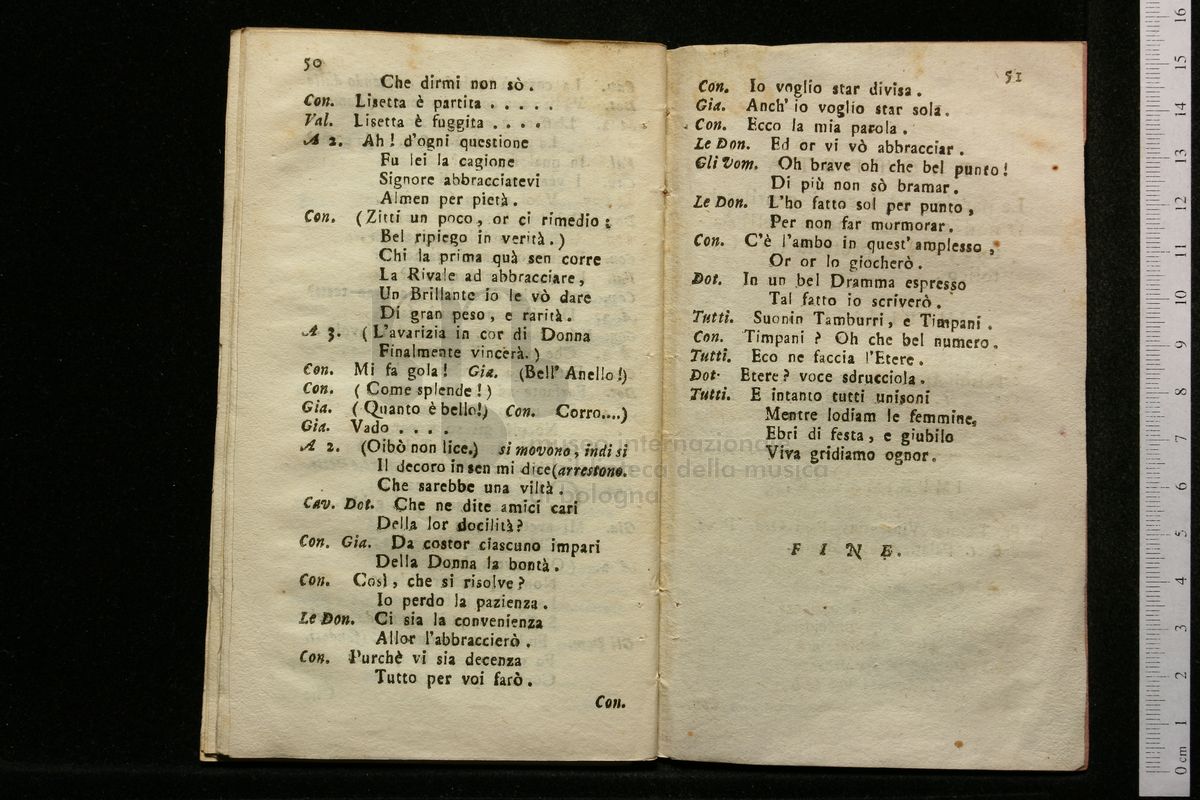 50
Che dirmi non sò.
Con. Lisetta è partita . . . . .
Val. Lisetta è fuggita . . . .
A 2. Ah! d'ogni questione
Fu lei la cagione
Signore abbracciatevi
Almen per pietà.
Con. (Zitti un poco, or ci rimedio;
Bel ripiego in verità.)
Chi la prima quà sen corre
La Rivale ad abbracciare,
Un Brillante io le vò dare
Di gran peso, e rarità.
A 3. (L'avarizia in cor di Donna
Finalmente vincerà.)
Con. Mi fa gola! Gia. (Bell' Anello!)
Con. (Come splende!)
Gia. (Quanto è bello!) Con. Corro....)
Gia. Vado . . . .
A 2. (Oibò non lice.) si movono, indi si
Il decoro in sen mi dice (arrestono.
Che sarebbe una viltà.
Cav. Dot. Che ne dite amici cari
Della lor docilità?
Con. Gia. Da costor ciascuno impari
Della Donna la bontà.
Con. Così, che si risolve?
Io perdo la pazienza.
Le Don. Ci sia la convenienza
Allor l'abbraccierò.
Con. Purchè vi sia decenza
Tutto per voi farò.
Con.
51
Con. Io voglio star divisa.
Gia. Anch' io voglio star sola.
Con. Ecco la mia parola.
Le Don. Ed or vi vò abbracciar.
Gli Uom. Oh brave oh che bel punto!
Di più non sò bramar.
Le Don. L'ho fatto sol per punto,
Per non far mormorar.
Con. C'è l'ambo in quest' amplesso,
Or or lo giocherò.
Dot. In un bel Dramma espresso
Tal fatto io scriverò.
Tutti. Suonin Tamburri, e Timpani.
Con. Timpani? Oh che bel numero.
Tutti. Eco ne faccia l'Etere.
Dot. Etere? voce sdrucciola.
Tutti. E intanto tutti unisoni
Mentre lodiam le femmine,
Ebri di festa, e giubilo
Viva gridiamo ognor.
FINE.
museo internazionale
biblioteca della musica
di bologna
16
15
14
13
12
11
10
9
8
7
6
5
4
3
2
1
0 cm